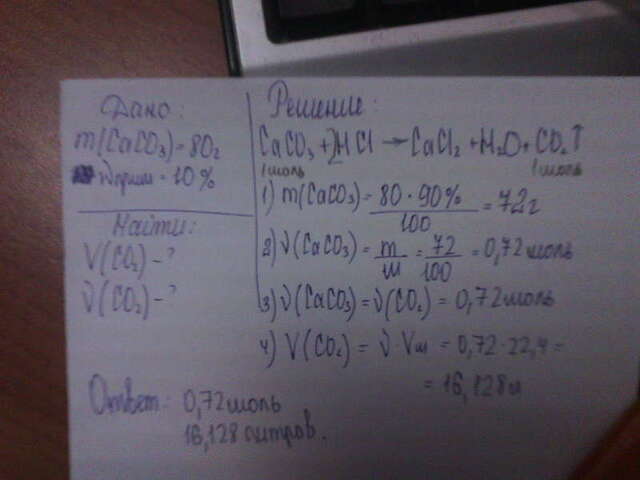 Дано:
m(CaCO₃)=80г
wприм = 10%
Найти:
V(CO₂) - ?
ν(CO₂) - ?
Решение:
CaCO₃ + 2HCl → CaCl₂ + H₂O + CO₂↑
1моль 1моль
1) m(CaCO₃) = 80·90% / 100 = 72г
2) ν(CaCO₃) = m/M = 72/100 = 0,72моль
3) ν(CaCO₃) = ν(CO₂) = 0,72моль
4) V(CO₂) = ν·Vm = 0,72·22,4 =
= 16,128л
Ответ: 0,72моль
16,128литров.